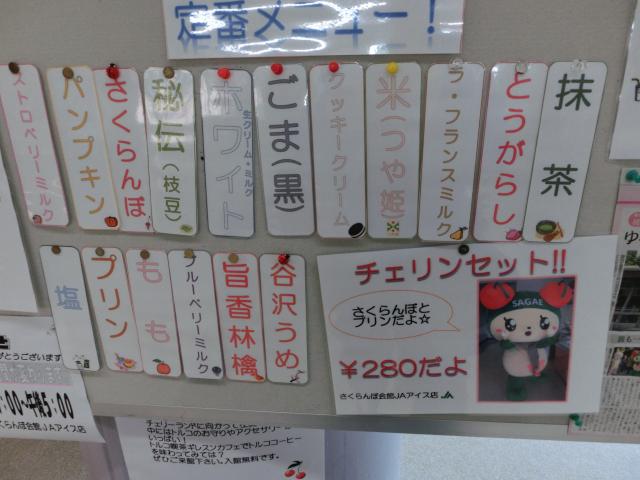 定番メニュー!
抹茶
とうがらし
ラ・フランスミルク
米(つや姫)
クッキークリーム
ごま(黒)
ホワイト
生クリーム・ミルク
秘伝(枝豆)
さくらんぼ
パンプキン
ストロベリーミルク
谷沢うめ
旨香林檎
ブルーベリーミルク
もも
プリン
塩
チェリンセット!!
さくらんぼと
プリンだよ☆
¥280だよ
さくらんぼ会館JAアイス店
SAGAE
ございます
:00~午後5:00
さくらんぼ会館JAアイス店
チェリーランドに向かって
中にはトルコのお守りやアクセサリー
いっぱい!
トルコ喫茶ギレスンカフェでトルココーヒー
を味わってみては?
ぜひご来館下さい。入館無料です。